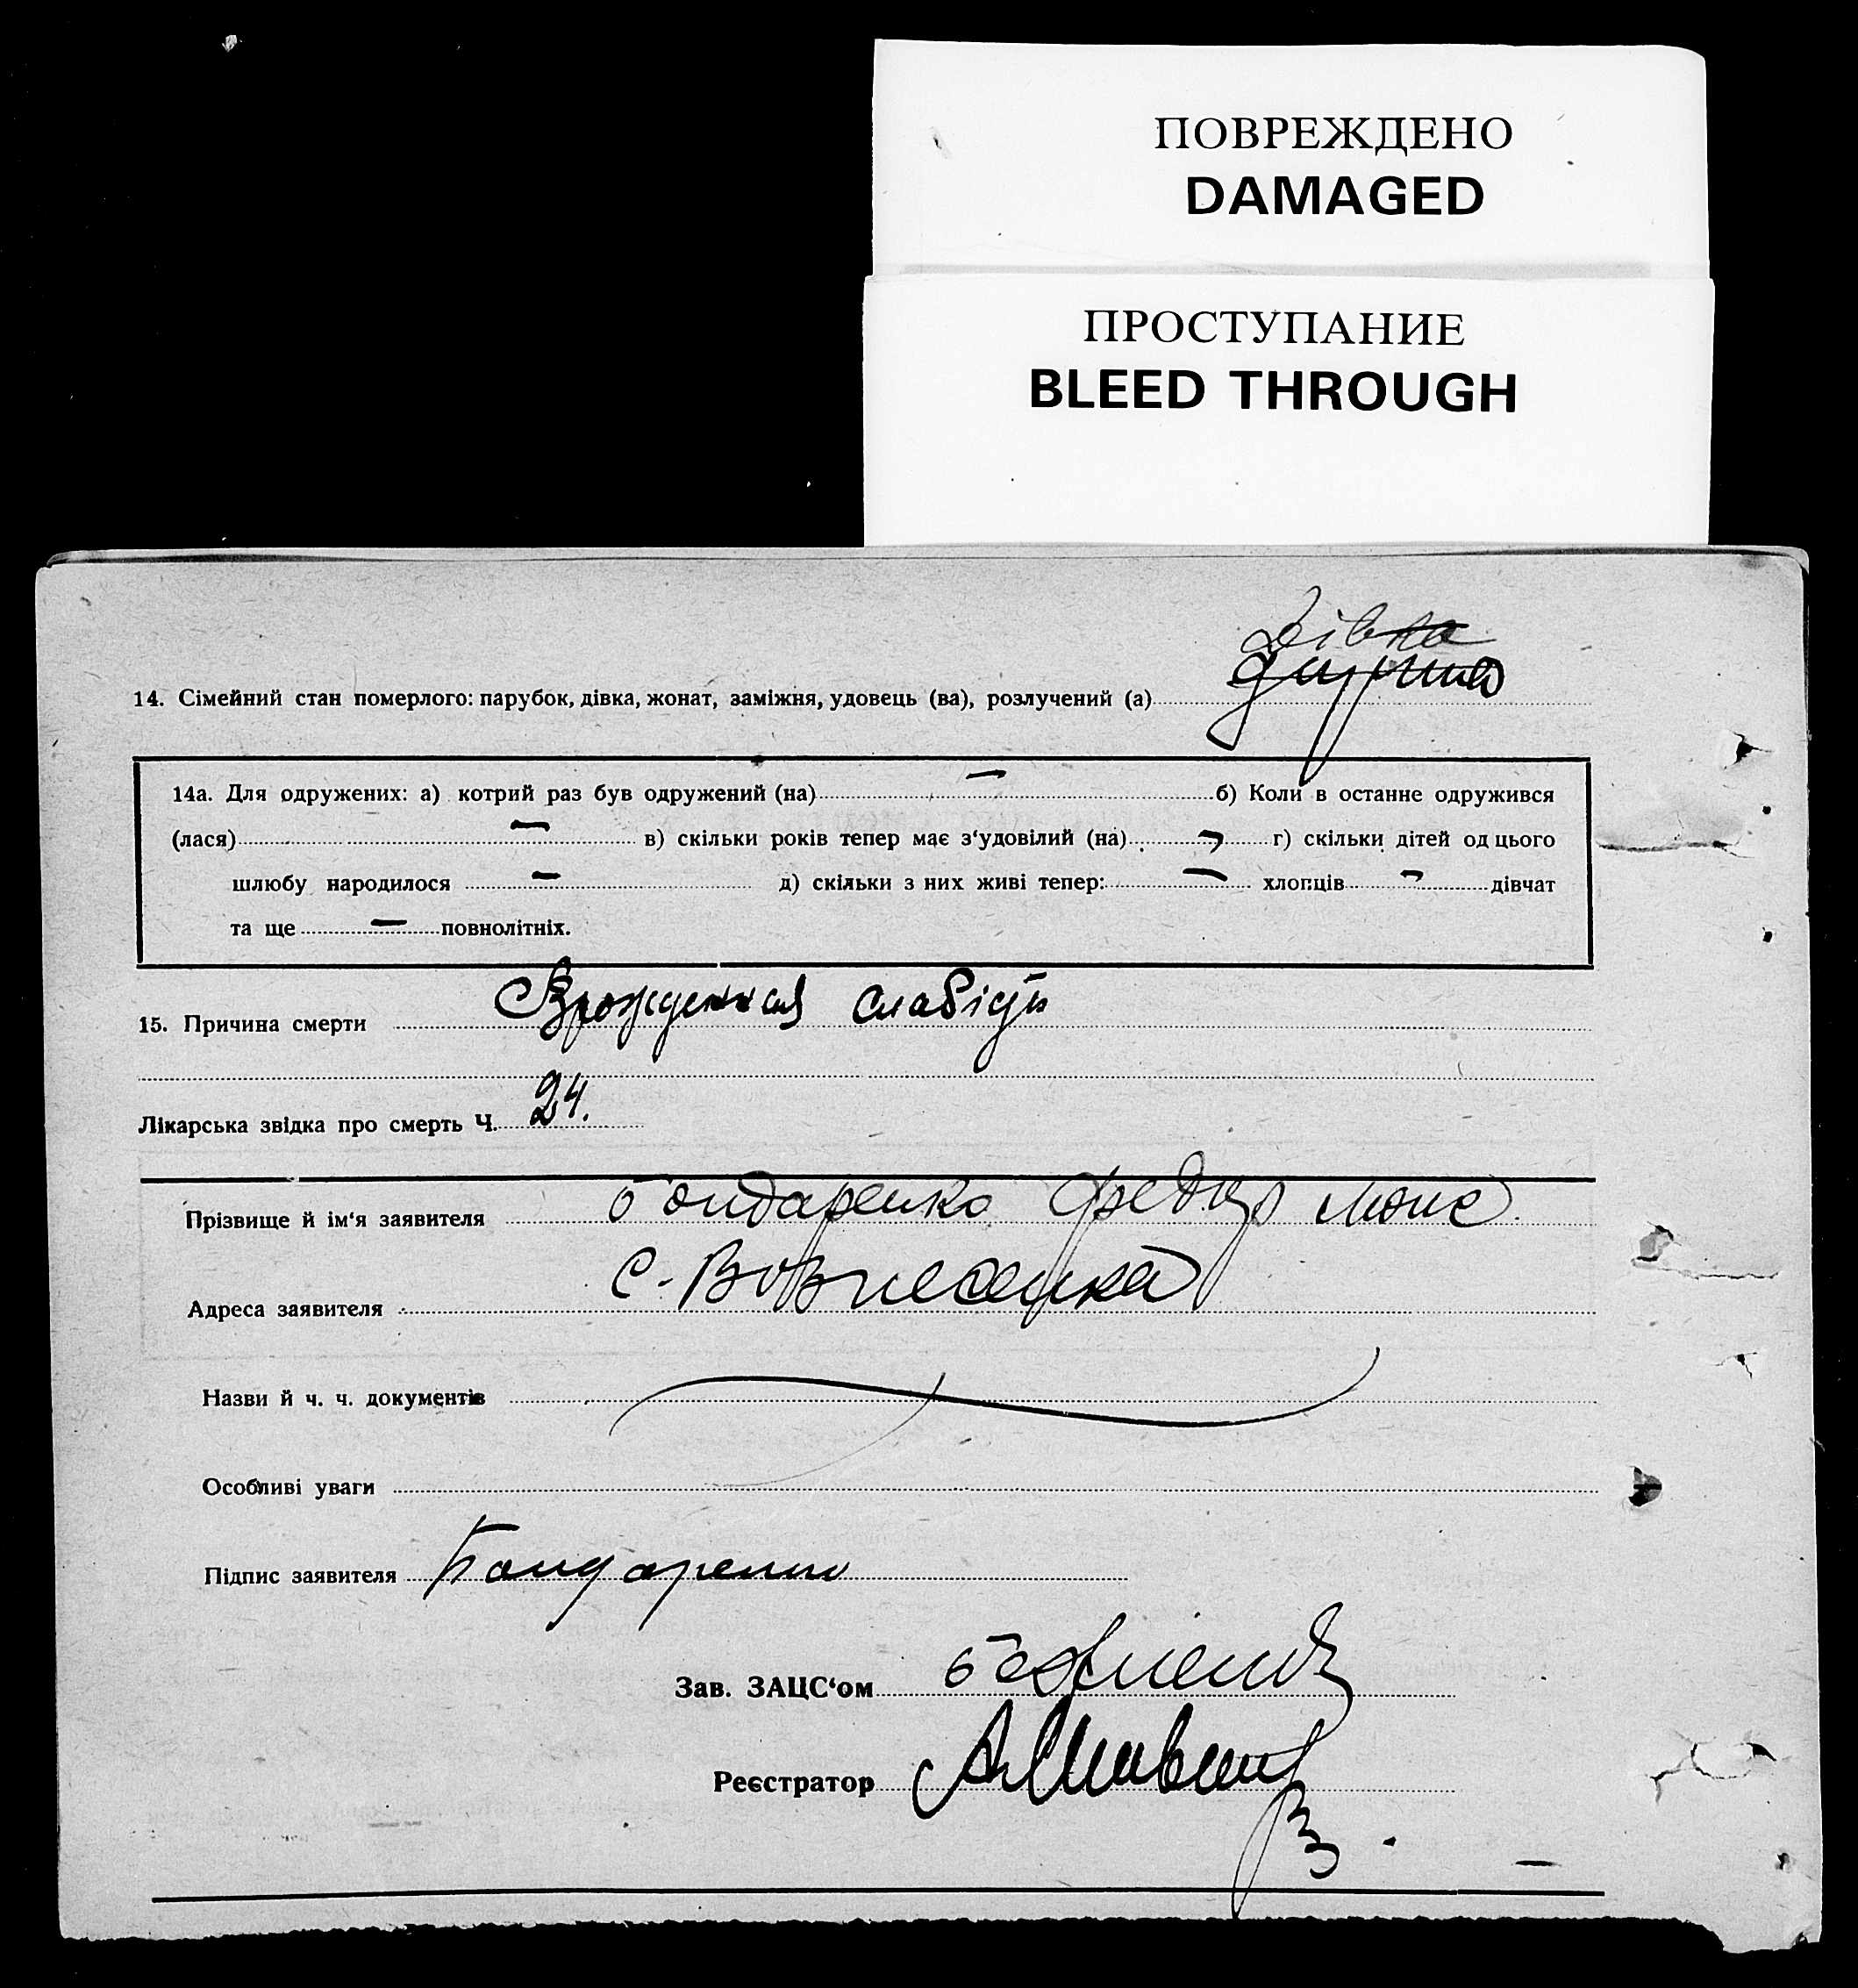 ПОВРЕЖДЕНО
DAMAGED
ПРОСТУПАНИЕ
BLEED THROUGH
дівка
14. Сімейний стан померлого: парубок, дівка, жонат, заміжня, удовець (ва), розлучений (а)
14а. Для одружених: а) котрий раз був одружений (на) — б) Коли в останнє одружився
(лася) — в) скільки років тепер має з‘удовілий (на) — г) скільки дітей од цього
шлюбу народилося — д) скільки з них живі тепер: — хлопців — дівчат
та ще — повнолітніх.
15. Причина смерти Врожденная слабість
Лікарська звідка про смерть Ч. 24.
Прізвище й ім‘я заявителя Бондаренко Федор
Адреса заявителя с. Вознесенка
Назви й ч. ч. документів
Особливі уваги
Підпис заявителя Бондаренко
Зав. ЗАЦС‘ом
Реєстратор